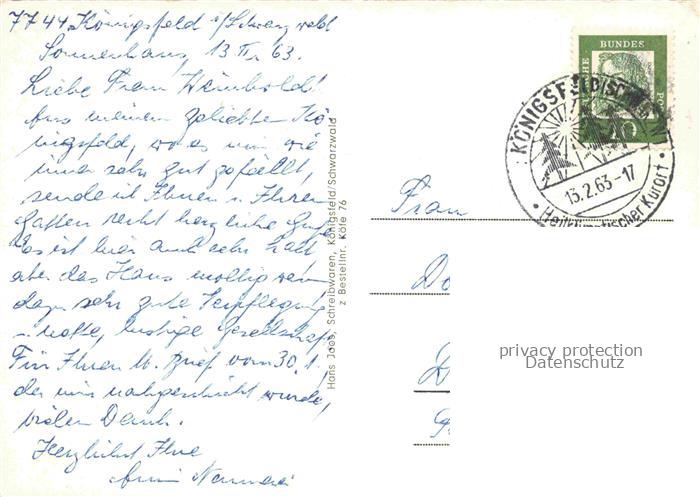 7744 Königsfeld i/Schwarzwald
Sonnenhaus, 13.II.63.
Liebe Frau Weinbold!
Aus meinem geliebten Kö-
nigsfeld, wo es mir wie
immer sehr gut gefällt,
sende ich Ihnen u. Ihrem
Gatten recht herzliche Grüße
Es ist hier auch sehr kalt,
aber das Haus mollig warm
dazu sehr gute Verpflegung
u. nette, lustige Gesellschaft
Für Ihren lb. Brief vom 30.1.,
der mir nachgeschickt wurde,
vielen Dank.
Herzlichst Ihre
Hans Joos, Schreibwaren, Königsfeld/Schwarzwald
z Bestellnr. Köfe 76
DEUTSCHE BUNDESPOST
10
KÖNIGSFELD (SCHWARZW)
13.2.63-17
Heilklimatischer Kurort
Frau
privacy protection
Datenschutz